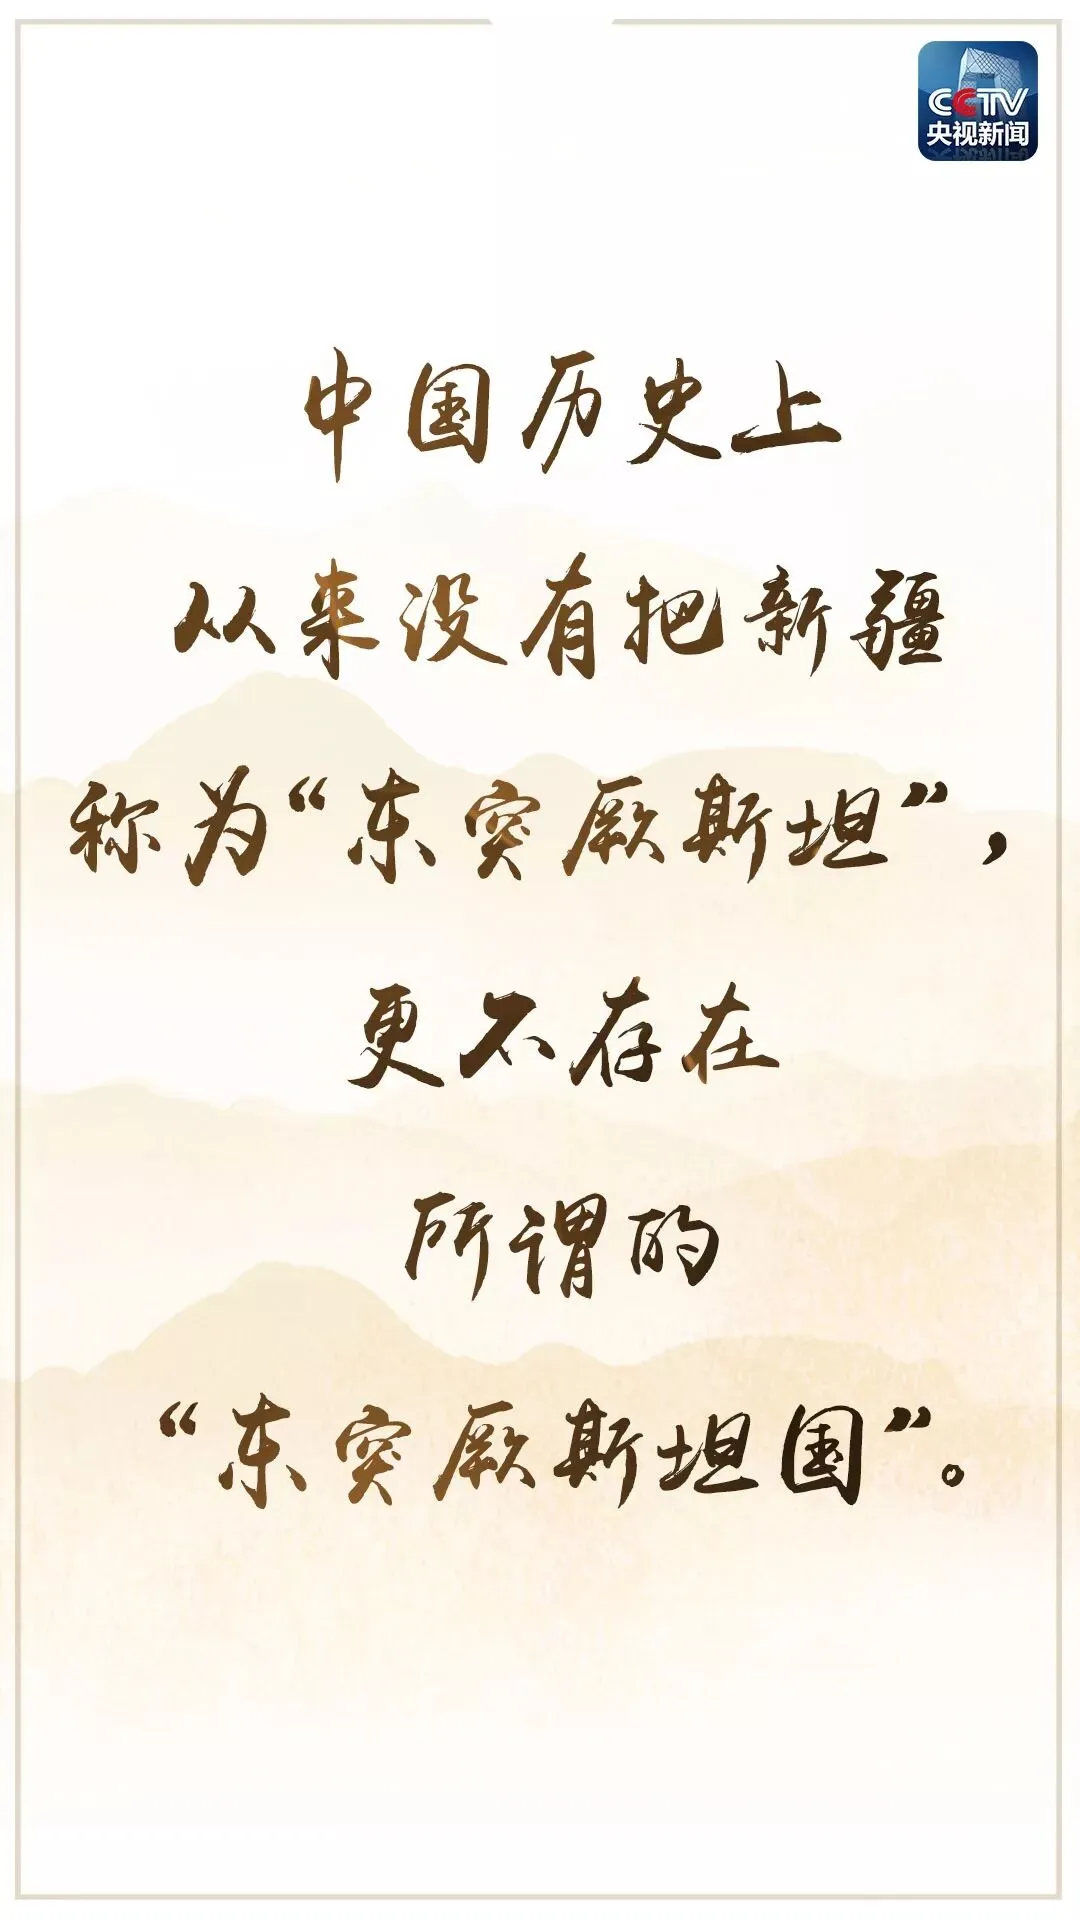 CCTV
央视新闻
中国历史上
从来没有把新疆
称为“东突厥斯坦”，
更不存在
所谓的
“东突厥斯坦国”。